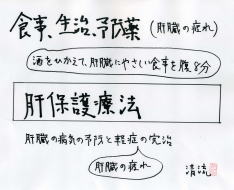 食事、生治、予防薬（肝臓の症れ）
酒をひかえて、肝臓にやさしい食事を腹8分
肝保護療法
肝臓の病気の予防と軽症の完治
肝臓の症れ
清流